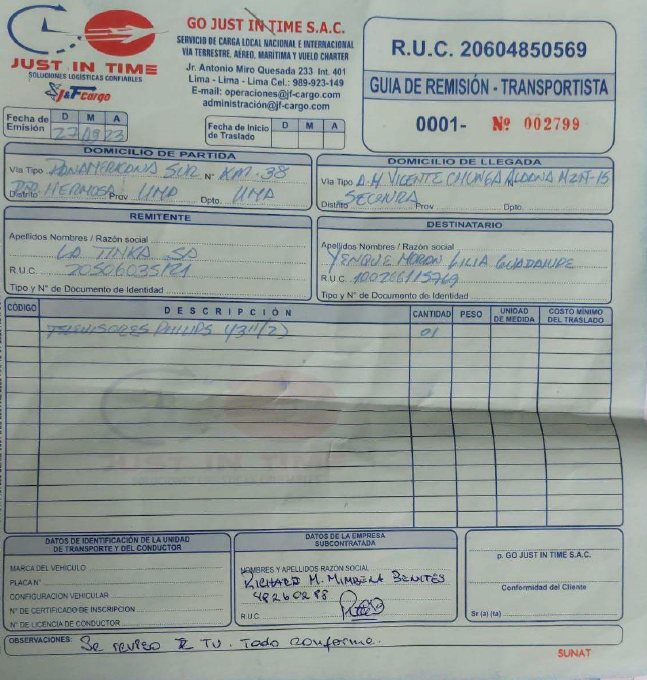 GO JUST IN TIME S.A.C.
SERVICIO DE CARGA LOCAL NACIONAL E INTERNACIONAL
VIA TERRESTRE, AÉREO, MARÍTIMA Y VUELO CHARTER
Jr. Antonio Miro Quesada 233 Int. 401
Lima - Lima - Lima Cel.: 989-923-149
E-mail: operaciones@jf-cargo.com
administración@jf-cargo.com
JUST IN TIME
SOLUCIONES LOGÍSTICAS CONFIABLES
J&F Cargo
R.U.C. 20604850569
GUIA DE REMISIÓN - TRANSPORTISTA
0001- Nº 002799
Fecha de Emisión D M A
27/09/23
Fecha de Inicio de Traslado D M A
DOMICILIO DE PARTIDA
Via Tipo PANAMERICANA SUR N° KM. 38
Distrito HERMOSA Prov LIMA Dpto. LIMA
DOMICILIO DE LLEGADA
Via Tipo A.H VICENTE CHUNGA ALDANA MZ
Distrito SECHURA Prov Dpto.
REMITENTE
Apellidos Nombres / Razón social
LA TINKA SA
R.U.C. 20506035121
Tipo y N° de Documento de Identidad
DESTINATARIO
Apellidos Nombres / Razón social
YENQUE MORAN LILIA GUADALUPE
R.U.C.
Tipo y N° de Documento de Identidad
CÓDIGO DESCRIPCIÓN CANTIDAD PESO UNIDAD DE MEDIDA COSTO MÍNIMO DEL TRASLADO
TELEVISORES PHILIPS 43"(2) 01
DATOS DE IDENTIFICACIÓN DE LA UNIDAD
DE TRANSPORTE Y DEL CONDUCTOR
MARCA DEL VEHICULO
PLACA N°
CONFIGURACION VEHICULAR
N° DE CERTIFICADO DE INSCRIPCION
N° DE LICENCIA DE CONDUCTOR
DATOS DE LA EMPRESA
SUBCONTRATADA
NOMBRES Y APELLIDOS RAZON SOCIAL
RICHARD M. MIMBELA BENITES
48260288
R.U.C.
p. GO JUST IN TIME S.A.C.
Conformidad del Cliente
Sr (a) (ta)
OBSERVACIONES: Se reviso TV. Todo conforme.
SUNAT